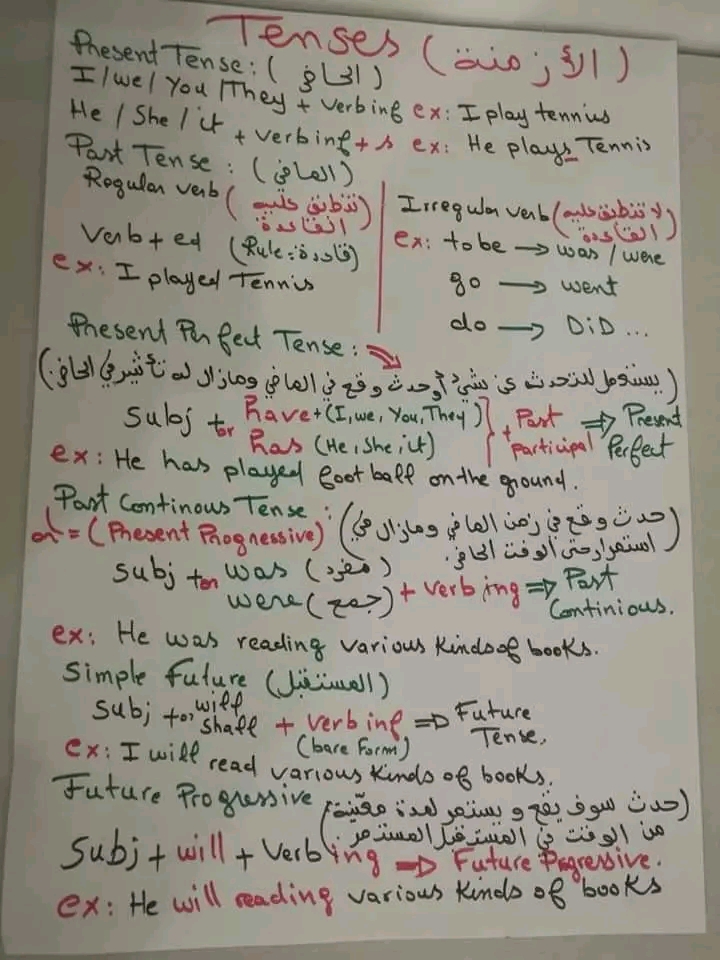 Tenses (الأزمنة)
Present Tense: (الحاضر)
I/we/You/They + verb inf ex: I play tennius
He / She / it + verb inf + s ex: He plays Tennis
Past Tense : (الماضي)
Regular verb (تنطبق عليه القاعدة)
Verb + ed (Rule = قاعدة)
ex: I played Tennis
Irregular verb (لا تنطبق عليه القاعدة)
ex: to be → was / were
go → went
do → DiD ...
Present Perfect Tense :
(يستعمل للتحدث عن شيء أوحدث وقع في الماضي ومازال له تأثير في الحاضر)
Subj + have + (I, we, You, They)
or has (He, She, it)
+ Past participal ⇒ Present Perfect
ex: He has played foot ball on the ground.
Past Continous Tense :
(حدث وقع في زمن الماضي ومازال في
استمرار حتى الوقت الحاضر.
or = (Present Progressive)
Subj + was (مفرد)
or were (جمع)
+ verb ing ⇒ Past Continious.
ex: He was reading various kinds of books.
Simple Future (المستقبل)
Subj + will
or shall
+ verb inf ⇒ Future Tense.
(bare form)
ex: I will read various kinds of books.
Future Progressive
(حدث سوف يقع و يستمر لمدة معينة
من الوقت في المستقبل المستمر.)
Subj + will + Verb ing ⇒ Future Progressive.
ex: He will reading various kinds of books